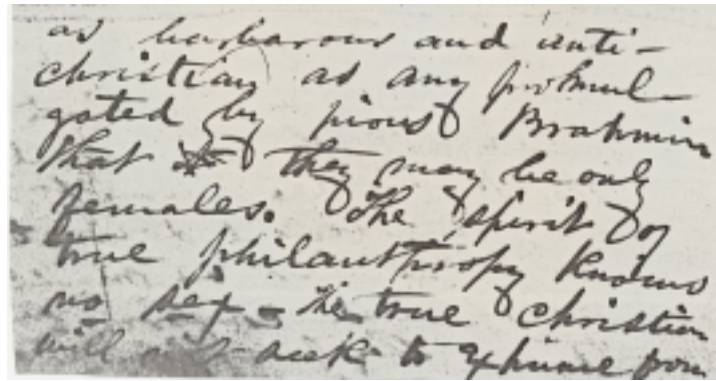 as barbarous and anti-
christian as any promul-
gated by pious Brahmin
that they may be only
females. The spirit of
true philanthropy knows
no sex - the true christian
will not seek to exhume from